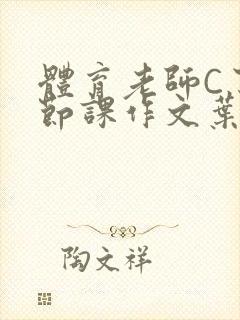 體育老師C
節課作文葉
陶文祥